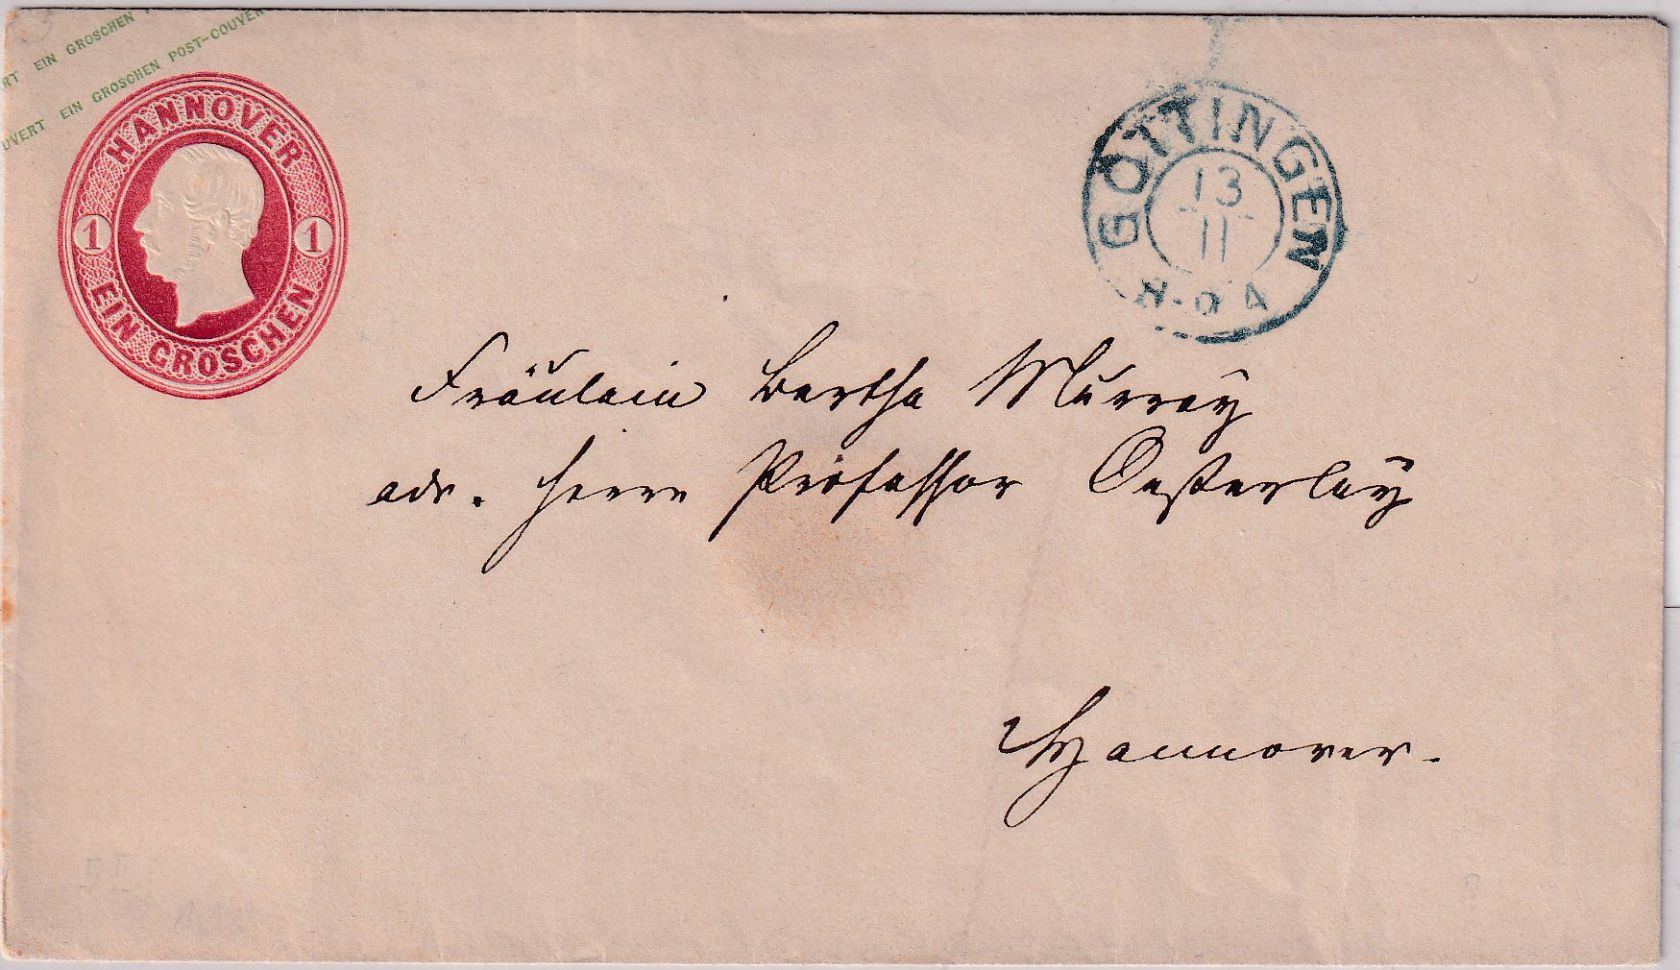 RT EIN GROSCHEN
UVERT EIN GROSCHEN POST-COUVER
HANNOVER
1 1
EIN GROSCHEN
GÖTTINGEN
13
11
Fräulein Bertha Murray
adr. Herrn Professor Oesterley
Hannover.